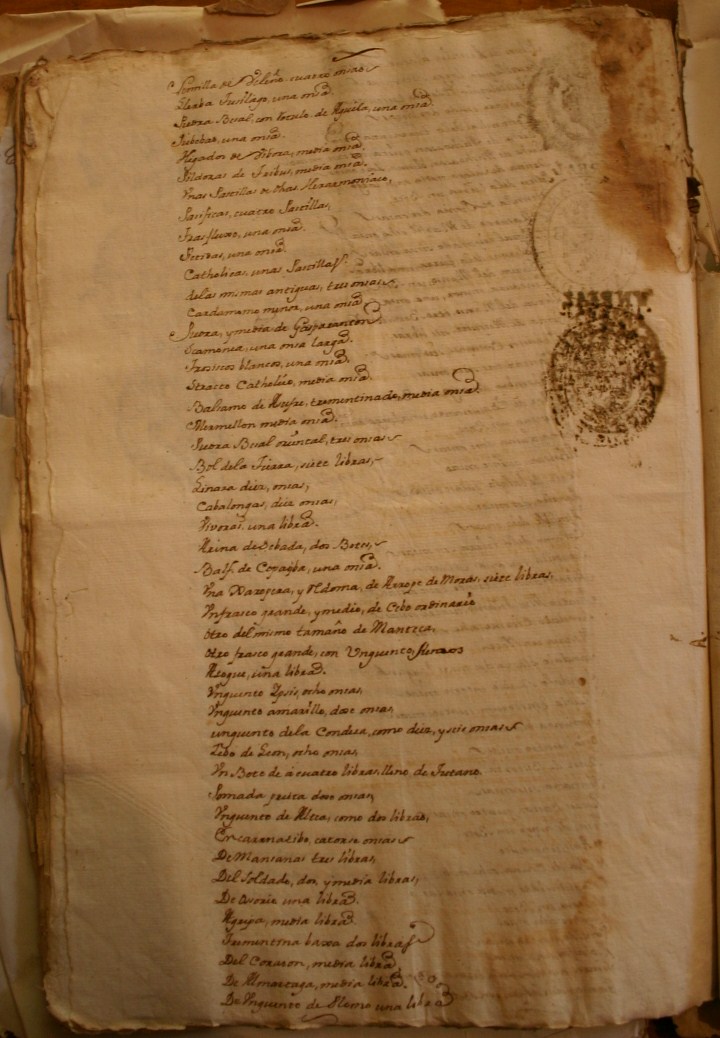 Semilla de Peleño, cuatro onsas
Yerba Tusilago, una onsa.
Piedra Bsual, con rotulo de Aguila, una onsa.
Jubebas, una onsa.
Higados de Vibora, media onsa.
Pildoras de Tribus, media onsa.
Unas Pastillas de
Pasificas, cuatro Pastillas,
una onsa.
una onsa.
Catholicas, unas Pastillas.
de las mismas antiguas, tres onsas
Cardamamo menor, una onsa
Piedra, y media de Gaspar anton.
Scamonea, una onsa larga.
Trosiscos blancos, una onsa.
Stracto Catholico, media onsa.
Balsamo de Asufre, trementinado, media onsa.
Bermellon media onsa.
Piedra Bsual oriental, tres onsas
Bol de la Tierra, siete libras,
dies, onsas,
Cabalongas, dies onsas,
Vivoras, una libra.
Harina de Sebada, dos Botes,
Bals. de Copayba, una onsa.
Una y Redoma, de Arrope de Moras, siete libras,
Un frasco grande, y medio, de Cebo ordinario
otro del mismo tamaño de Manteca,
otro frasco grande, con Unguento,
Asogue, una libra.
Unguento Ysis, ocho onsas,
Unguento amarillo, dose onsas,
unguento de la Condesa, como diez, y seis onsas
Cebo de Leon, ocho onsas,
Un Bote de á cuatro libras, lleno de
Pomada dose onsas,
Unguento de Altea, como dos libras,
Encarnatibo, catorse onsas
De Mansanas tres libras,
Del Soldado, dos, y media libras,
De una libra.
Agripa, media libra.
Trementina baxa dos libras
Del Corazon, media libra
De Almartaga, media libra.
De Unguento de Plomo una libra